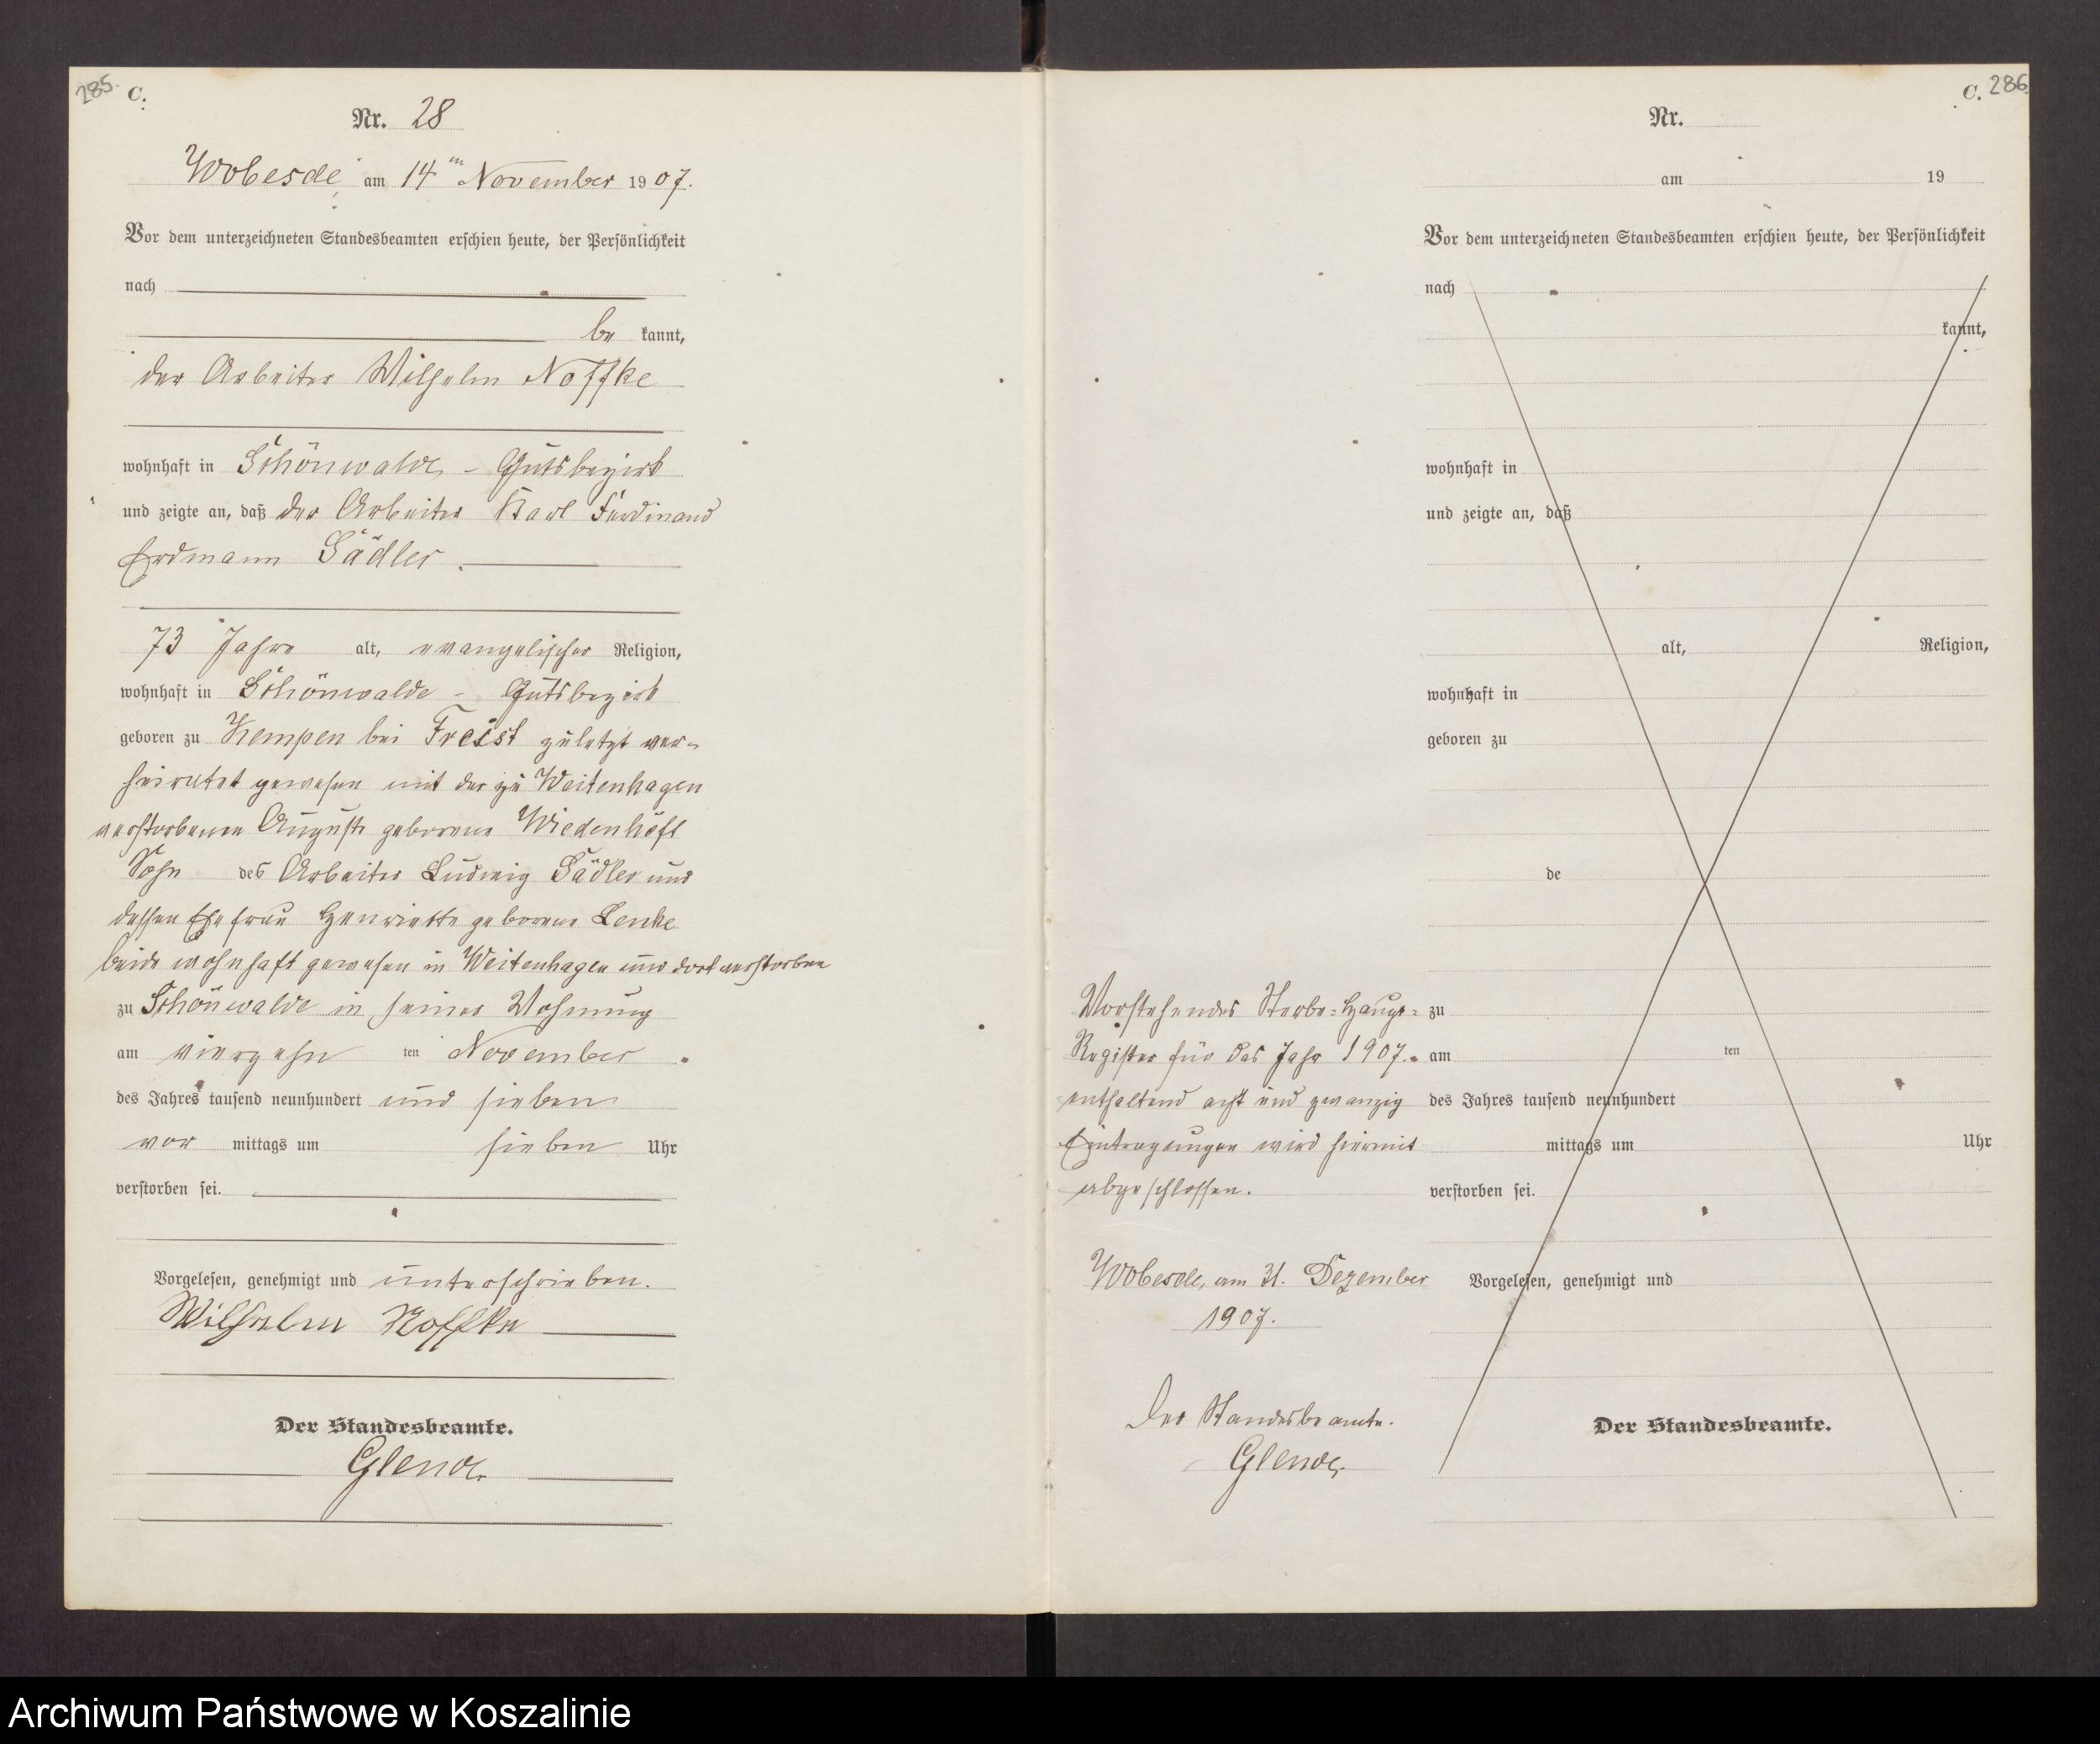 285.
C.
Nr. 28
Wobesde, am 14ten November 1907.
Vor dem unterzeichneten Standesbeamten erschien heute, der Persönlichkeit
nach
be kannt,
der Arbeiter Wilhelm Noffke
wohnhaft in Schönwalde - Gutsbezirk
und zeigte an, daß der Arbeiter Karl Ferdinand
Erdmann Sädler.
73 Jahre alt, evangelischer Religion,
wohnhaft in Schönwalde - Gutsbezirk
geboren zu Kempen bei Freist zuletzt ver-
heiratet gewesen mit der zu Weitenhagen
verstorbenen Auguste geborene Wiedenhöft
Sohn des Arbeiter Ludwig Sädler und
dessen Ehefrau Henriette geborene Lenke
beide wohnhaft gewesen in Weitenhagen und dort verstorben
zu Schönwalde in seiner Wohnung
am vierzehn ten November
des Jahres tausend neunhundert und sieben
vor mittags um sieben Uhr
verstorben sei.
Vorgelesen, genehmigt und unterschrieben.
Wilhelm Noffke
Der Standesbeamte.
Glende.
C. 286.
Nr.
am 19
Vor dem unterzeichneten Standesbeamten erschien heute, der Persönlichkeit
nach
kannt,
wohnhaft in
und zeigte an, daß
alt, Religion,
wohnhaft in
geboren zu
de
zu
am ten
des Jahres tausend neunhundert
mittags um Uhr
verstorben sei.
Vorgelesen, genehmigt und
Der Standesbeamte.
Vorstehendes Sterbe-Haupt-
Register für das Jahr 1907.
enthaltend acht und zwanzig
Eintragungen wird hiermit
abgeschlossen.
Wobesde, am 31. Dezember
1907.
Der Standesbeamte.
Glende.
Archiwum Państwowe w Koszalinie